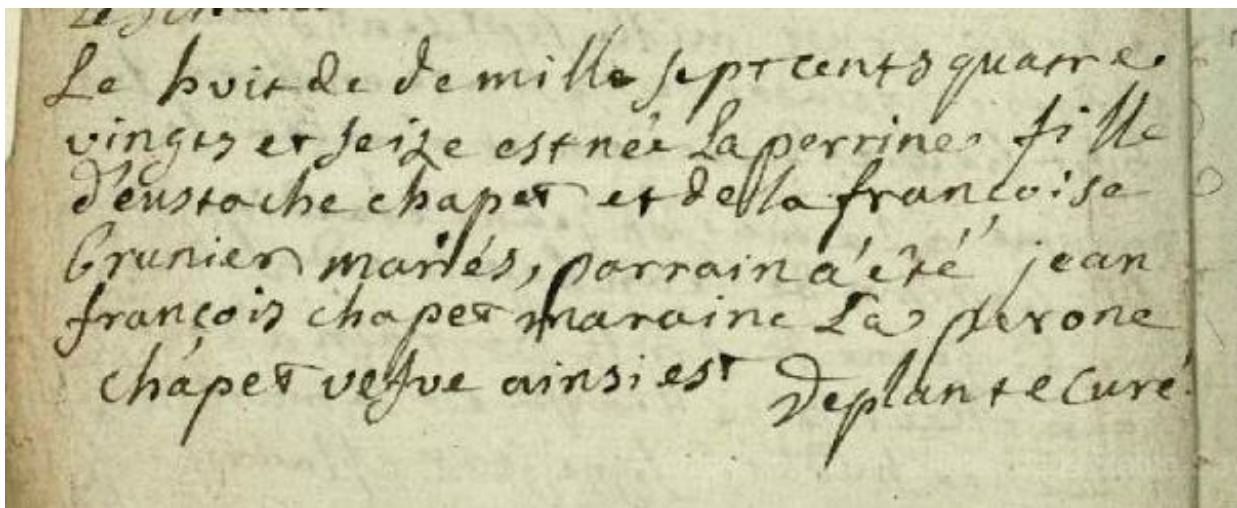 Le huit de de mille septcents quatre
vingts et seize est née La perrine fille
d'eustache chapet et de la françoise
Grunier mariés, parrain a été jean
françois chapet maraine La perone
chapet vefve ainsi est Deplante Curé